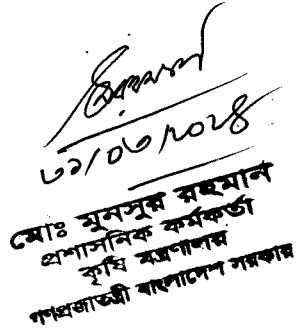 ৩১/০৩/২০২৪
মোঃ মুনসুর রহমান
প্রশাসনিক কর্মকর্তা
কৃষি মন্ত্রণালয়
গণপ্রজাতন্ত্রী বাংলাদেশ সরকার